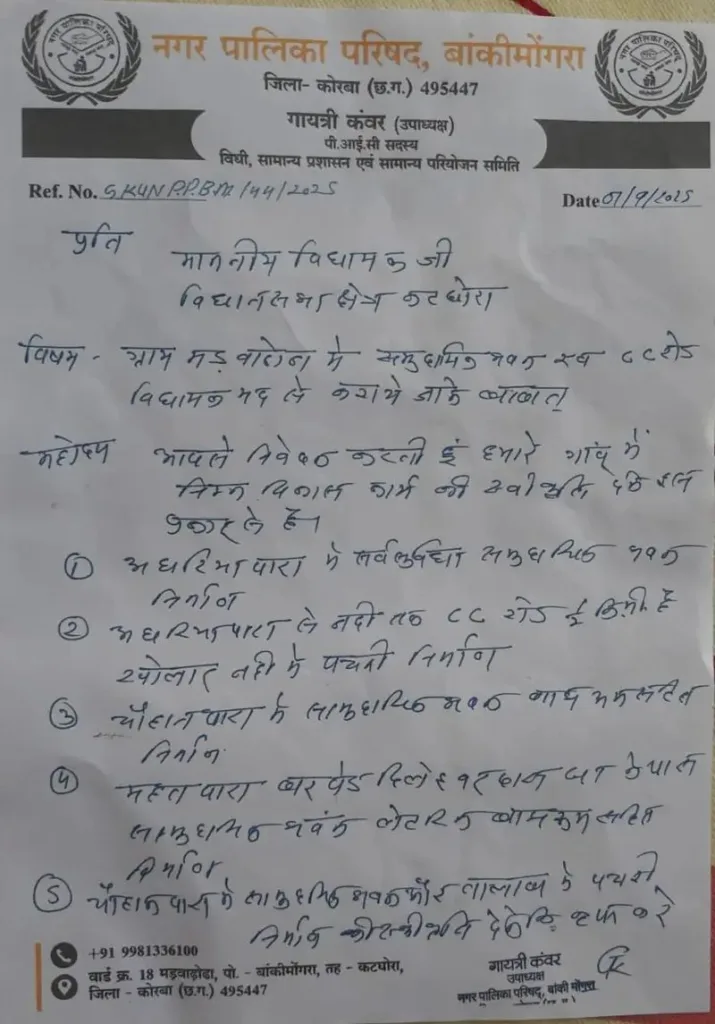 नगर पालिका परिषद, बांकीमोंगरा
जिला- कोरबा (छ.ग.) 495447
गायत्री कंवर (उपाध्यक्ष)
पी.आई.सी सदस्य
विधी, सामान्य प्रशासन एवं सामान्य परियोजन समिति
Ref. No. GKUNP.P.BM/44/2025
Date 01/9/2025
प्रति
माननीय विधायक जी
विधानसभा क्षेत्र कटघोरा
विषय - ग्राम मड़वाढोढा मे समुदायिक भवन एवं CC रोड
विधायक मद से कराये जाने बाबत्
महोदय आपसे निवेदन करती हुं हमारे गांव में
निम्न विकास कार्य की स्वीकृति देने इस
प्रकार से है।
① अघरियापारा मे सर्वसुविधा समुदायिक भवन
निर्माण
② अघरियापारा से नदी तक CC रोड कि.मी. है
खोलार नदी मे पचरी निर्माण
③ चौहानपारा मे सामुदायिक भवन सहित
निर्माण
④ महंत पारा बर पेड के पास
सामुदायिक भवन लेटरिन बाथरूम सहित
निर्माण
⑤ चौहान पारा मे सामुदायिक भवन और तालाब मे पचरी
निर्माण की स्वीकृति करे
+91 9981336100
वार्ड क्र. 18 मड़वाढोढा, पो. - बांकीमोंगरा, तह - कटघोरा,
जिला - कोरबा (छ.ग.) 495447
गायत्री कंवर
उपाध्यक्ष
नगर पालिका परिषद्, बांकी मोंगरा